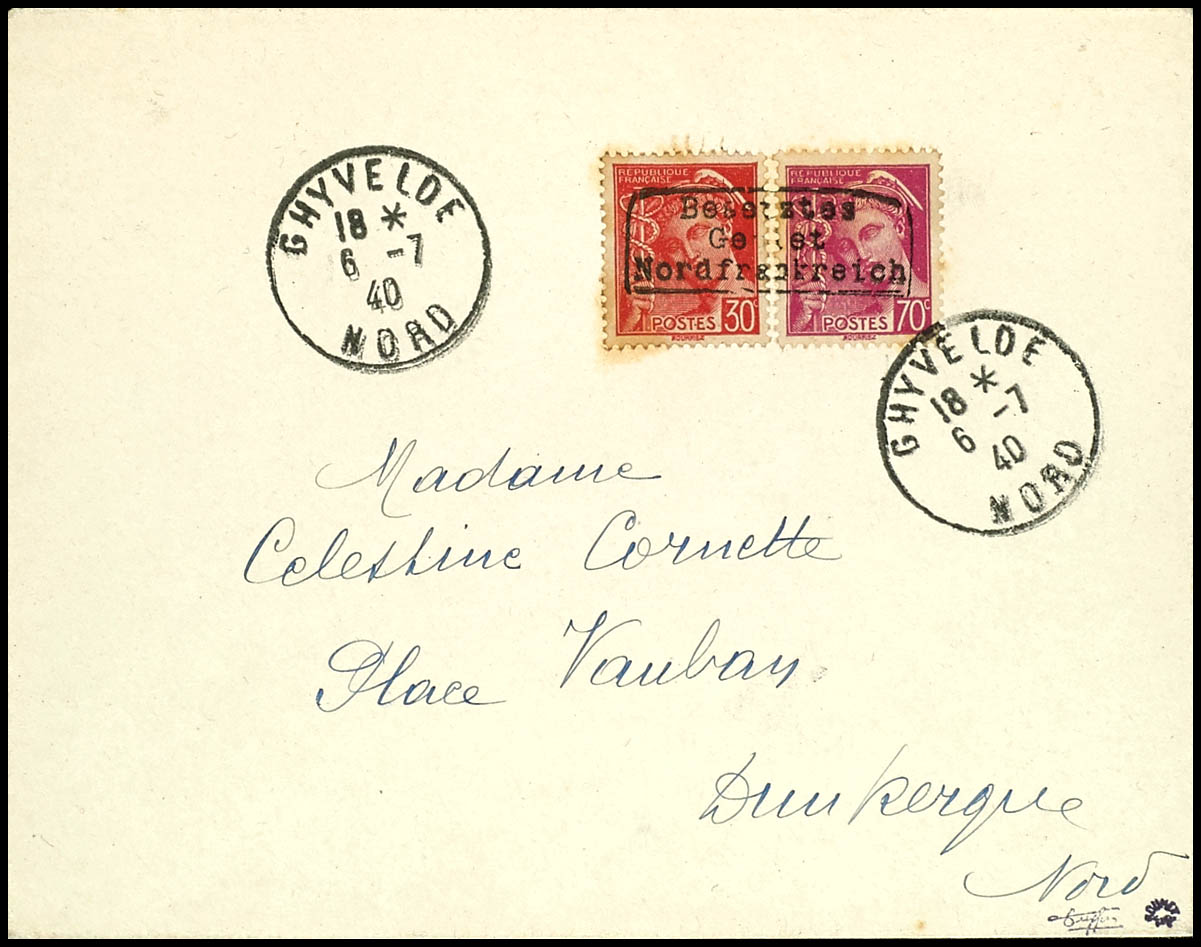 GHYVELDE
18 *
6 -7
40
NORD
RÉPUBLIQUE
FRANÇAISE
POSTES 30c
RÉPUBLIQUE
FRANÇAISE
POSTES 70c
Besetztes
Gebiet
Nordfrankreich
GHYVELDE
18 *
6 -7
40
NORD
Madame
Celestine Cornette
Place Vauban
Dunkerque
Nord